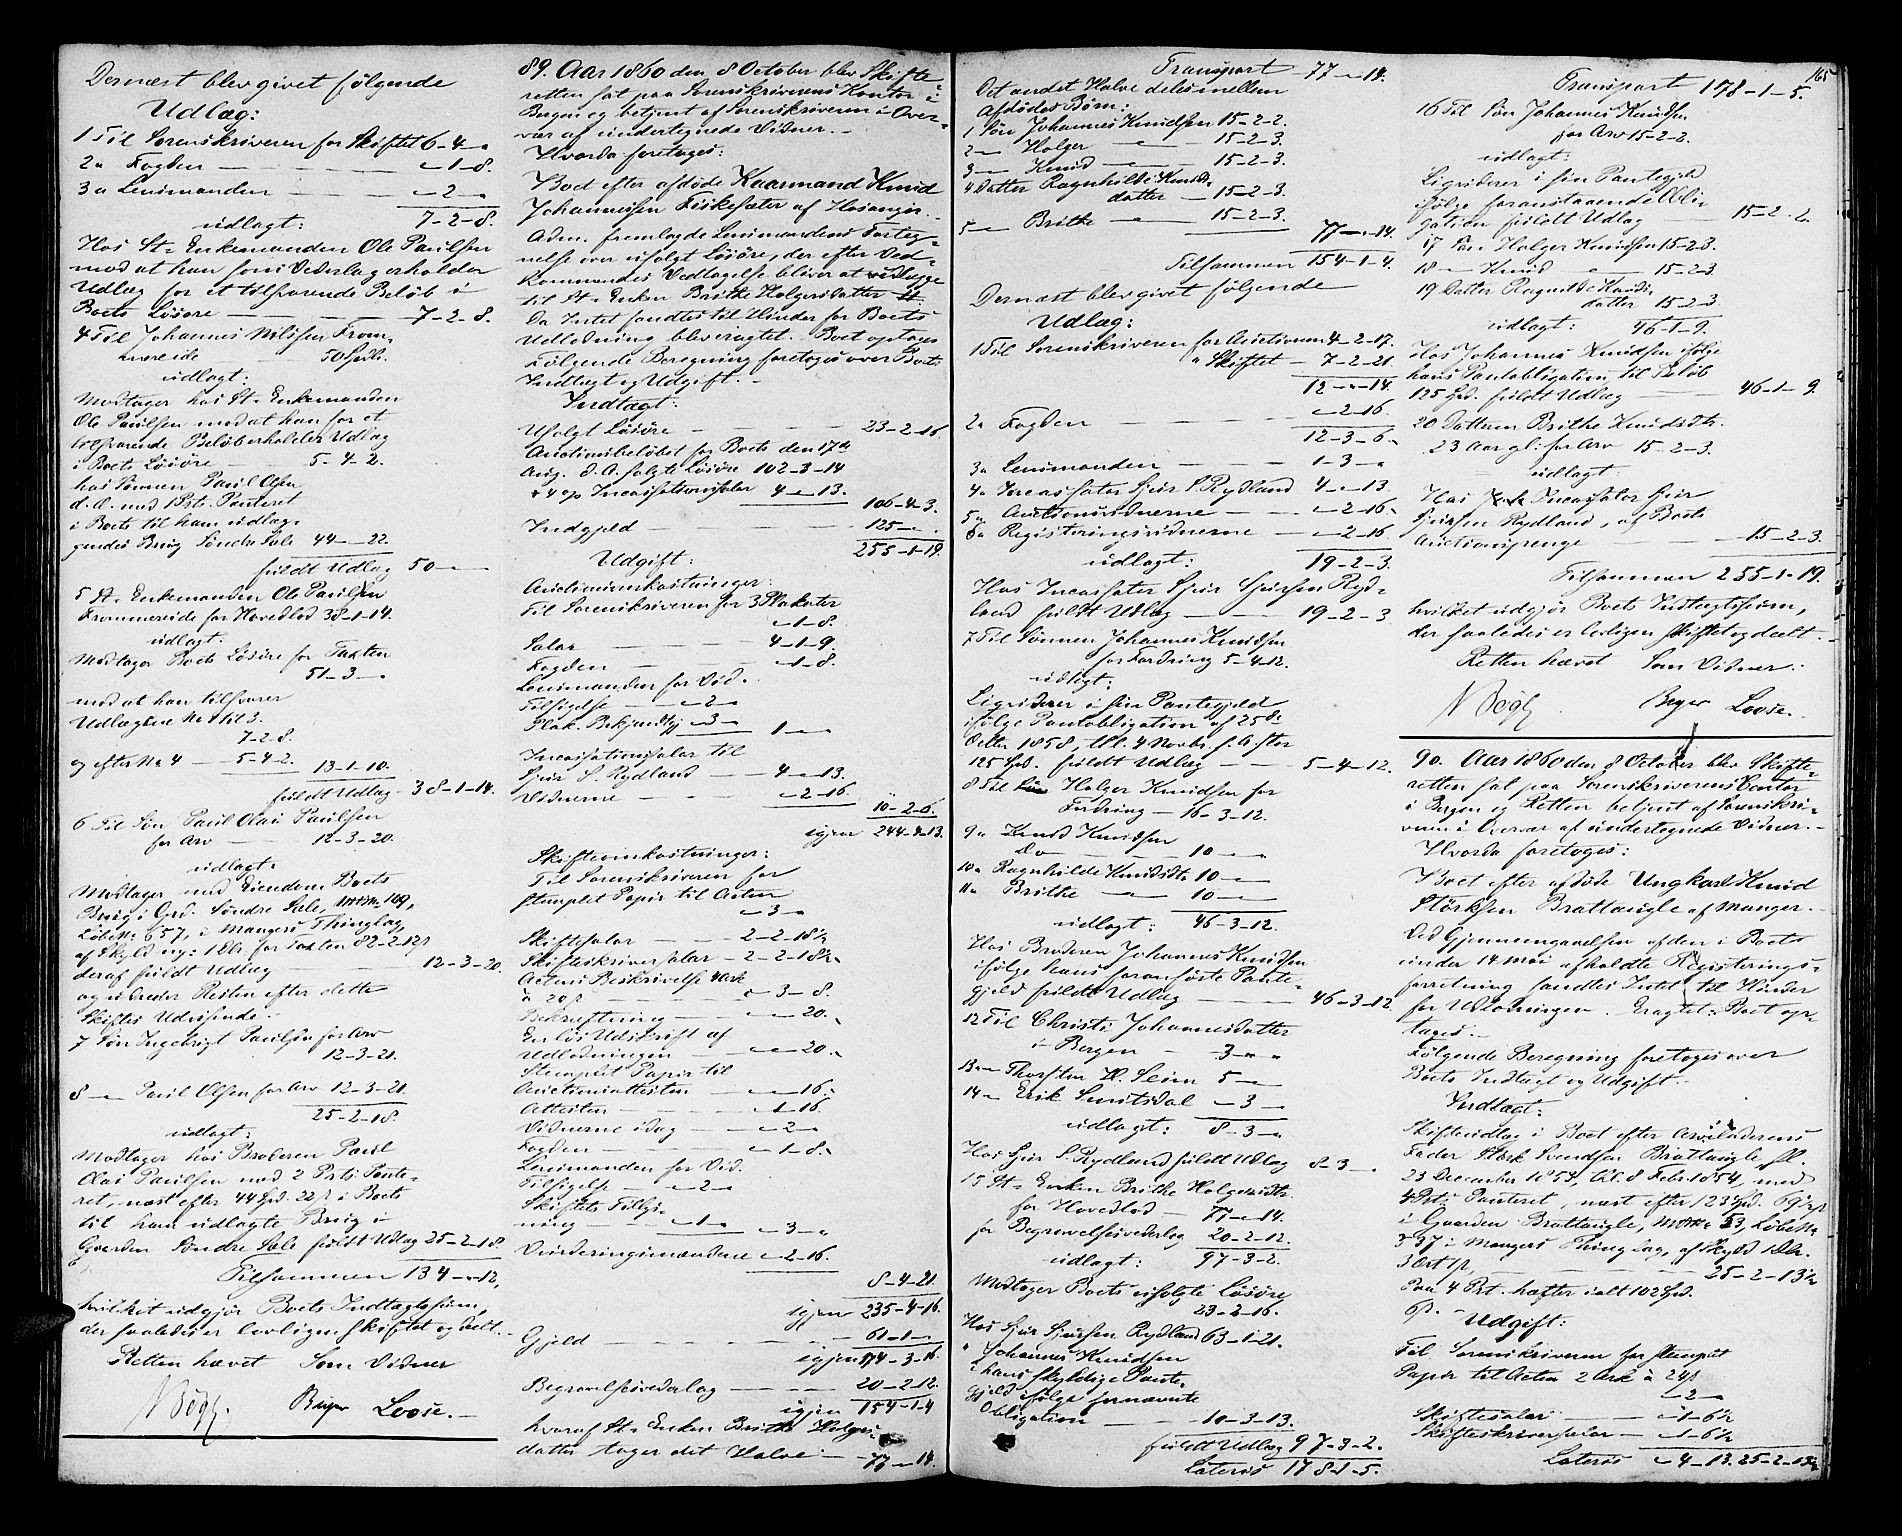 Dernæst blev givet følgende
Udlæg:
1 Til Sorenskriveren for Skiftet 6-4-"
2 " Fogden "-1-8.
3 " Lensmanden "-2-"
7-2-8.
udlagt:
Hos St: Enkemanden Ole Paulsen
mod at han som Vederlag erholder
Udlæg for et tilsvarende Beløb i
Boets Løsøre 7-2-8.
4 Til Johannes Nilssen From-
mereide 50 Spd.
udlagt:
Modtager hos St: Enkemanden
Ole Paulsen mod at han for et
tilsvarende Beløb erholder Udlæg
i Boets Løsøre 5-4-2.
hos Sønnen Paul Olsen
d. A. med 1 Prts. Panteret
i Boets til ham udlæg-
gendes Brug Søndre Sæle 44-"-22.
fuldt Udlæg 50-"-"
5 St: Enkemanden Ole Paulsen
Frommereide for Hovedlod 38-1-14.
udlagt:
Modtager Boets Løsøre for Taxten
51-3-"
mod at han tilsvarer
Udlægene No 1 til 3.
7-2-8.
og efter No 4 5-4-2.
13-1-10.
fuldt Udlæg 38-1-14.
6 Til Søn Paul Olai Paulsen
for Arv 12-3-20.
udlagt:
Modtager med Eiendom Boets
Brug i Grd. Søndre Sæle, MNo 169,
Løbe No 657, i Mangers Thinglag,
af Skyld ny: 1 Dlr. for Taxten 82-2-12 s
deraf fuldt Udlæg 12-3-20.
og udreder Resten efter dette
Skiftes Udvisende.
7 Søn Ingebrigt Paulsen for Arv
12-3-21.
8 " Paul Olsen for Arv 12-3-21.
25-2-18.
udlagt:
Modtager hos Broderen Paul
Olai Paulsen med 2 Prts Pante-
ret, næst efter 44 Spd. 22 s i Boets
til ham udlagte Brug i
Gaarden Søndre Sæle fuldt Udlæg 25-2-18.
Tilsammen 134-"-12,
hvilket udgjør Boets Indtægtssum,
der saaledes er lovligen skiftet og deelt.
Retten hævet Som Vidner
N Bøgh. Beyer Loose.
89. Aar 1860 den 8 October blev Skifte-
retten sat paa Sorenskriverens Kontor i
Bergen og betjent af Sorenskriveren i Over-
vær af undertegnede Vidner.
Hvorda foretoges:
Boet efter afdøde Kaarmand Knud
Johannessen Fiskesæter af Hosanger.
Adm. fremlagde Lensmandens Forteg-
nelse over usolgt Løsøre, der efter Ved-
kommendes Vedtagelse bliver at udlægge
til St: Enken Brithe Holgersdatter.
Da Intet fandtes til Hinder for Boets
Udlodning blev eragtet. Boet optages
Følgende Beregning foretoges over Boets
Indtægt og Udgift.
Indtægt:
Usolgt Løsøre 23-2-16.
Auctionsbeløbet for Boets den 17de
Aug. d. A. solgte Løsøre 102-3-14
+ 4 op Incassationssalar 4-"-13.
106-4-3.
Indgjeld 125-"-"
255-1-19.
Udgift:
Auctionsomkostninger:
Til Sorenskriveren for 3 Plakater
"-1-8.
Salar 4-1-9.
Fogden "-1-8.
Lensmanden for Vid.
Tilsigelse "-2-"
Plak. Bekjendtgj. "-3-" 1-"-"
Incassationssalar til
Sjur S. Rydland 4-"-13.
Vidnerne "-2-16
10-2-6.
igjen 244-4-13.
Skifteomkostninger:
Til Sorenskriveren for
stemplet Papir til Acten
"-3-"
Skiftesalar 2-2-18½
Skifteskriversalar 2-2-18½
Actens Beskrivelse 4 Ark
à 20 s "-3-8.
Bekræftning "-"-20.
En løs Udskrift af
Udlodningen "-"-20.
Stemplet Papir til
Auctionsattesten "-"-16.
Attesten "-1-16.
Vidnerne idag "-2-"
Fogden "-1-8.
Lensmanden for Vid.
Tilsigelse "-2-"
Skiftets Tillys-
ning "-1-" "-3-"
Vurderingsmændene "-2-16
8-4-21.
igjen 235-4-16.
Gjeld 61-1-"
igjen 174-3-16.
Begravelsesvederlag 20-2-12.
igjen 154-1-4
hvoraf St: Enken Brithe Holgers-
datter tager det Halve 77-"-14.
Transport 77-"-14.
Det andet Halve deles mellem
Afdødes Børn:
1 Søn Johannes Knudsen 15-2-2.
2 " Holger 15-2-3.
3 " Knud 15-2-3.
4 Datter Ragnhilde Knuds-
datter 15-2-3.
5 " Brithe 15-2-3.
77-"-14.
Tilsammen 154-1-4.
Dernæst blev givet følgende
Udlæg:
1 Til Sorenskriveren for Auctionen 4-2-17.
" Skiftet 7-2-21.
12-"-14.
2 " Fogden "-2-16.
12-3-6.
3 " Lensmanden 1-3-"
4 " Incassator Sjur S. Rydland 4-"-13.
5 " Auctionsvidnerne "-2-16.
6 " Registeringsvidnerne "-2-16.
19-2-3.
udlagt:
Hos Incassator Sjur Sjursen Ryd-
land fuldt Udlæg 19-2-3
7 Til Sønnen Johannes Knudsen
for Fordring 5-4-12.
udlagt:
Liqviderer i sin Pantegjeld
ifølge Pantobligation af 25de
Octbr. 1858, thl. 4 Novbr. s. A. stor
125 Spd. fuldt Udlæg 5-4-12.
8 Til Holger Knudsen for
Fordring 16-3-12.
9 " Knud Knudsen
Do 10-"-"
10 " Ragnhilde Knudsdtr. 10-"-"
11 " Brithe 10-"-"
46-3-12.
udlagt:
Hos Broderen Johannes Knudsen
ifølge hans foranførte Pante-
gjeld fuldt Udlæg 46-3-12.
12 Til Christi Johannesdatter
i Bergen 3-"-"
13 " Thorsten H. Seim 5-"-"
14 " Erik Smitsdal "-3-"
8-3-"
udlagt:
Hos Sjur S. Rydland fuldt Udlæg 8-3-"
15 St: Enken Brithe Holgersdtr.
for Hovedlod 77-"-14.
for Begravelsesvederlag 20-2-12.
97-3-2.
udlagt:
Modtager Boets usolgte Løsøre
23-2-16.
Hos Sjur Sjursen Rydland 63-1-21.
" Johannes Knudsen
i hans skyldige Pante-
gjeld ifølge fornævnte
Obligation 10-3-13.
fuldt Udlæg 97-3-2.
Lateris 178-1-5.
165
Transport 178-1-5.
16 Til Søn Johannes Knudsen
for Arv 15-2-2.
udlagt:
Liqviderer i sin Pantegjeld
ifølge foranstaaende Obli-
gation fuldt Udlæg 15-2-2.
17 Søn Holger Knudsen 15-2-3.
18 " Knud 15-2-3.
19 Datter Ragnilde Knuds-
datter 15-2-3.
46-1-9.
udlagt:
Hos Johannes Knudsen ifølge
hans Pantobligation til Beløb
125 Spd. fuldt Udlæg 46-1-9.
20 Datteren Brithe Knudsdtr.
23 Aar gl: for Arv 15-2-3.
udlagt
Hos Incassator Sjur
Sjursen Rydland, af Boets
Auctionspenge 15-2-3.
Tilsammen 255-1-19.
hvilket udgjør Boets Indtægtssum,
der saaledes er lovligen skiftet og deelt.
Retten hævet Som Vidner:
N Bøgh. Beyer Loose.
90. Aar 1860 den 8 October blev Skifte-
retten sat paa Sorenskriverens Contor
i Bergen og Retten betjent af Sorenskri-
veren i Overvær af undertegnede Vidner.
Hvorda foretoges:
Boet efter afdøde Ungkarl Knud
Størksen Brattaugle af Manger.
Ved Gjennemgaaelsen af den i Boets
under 14 Mai afholdte Registerings-
forretning fandtes Intet til Hinder
for Udlodningen. Eragtet: Boet op-
tages.
Følgende Beregning foretoges over
Boets Indtægt og Udgift.
Indtægt:
Skifteudlæg i Boet efter Arveladerens
Fader Størk Svendsen Brattaugle, fl.
23 December 1853, thl. 8 Febr. 1854, med
4 Prts Panteret, næst efter 123 Spd. 69½ s
i Gaarden Brattaugle, MNo 53, Løbe No
337 i Mangers Thinglag, af Skyld 1 Dlr.
3 Ort 1 s, 25-2-13½
Paa 4 Prt. hæfter ialt 102 Spd.
6 s.
Udgift:
Til Sorenskriveren for stemplet
Papir til Acten 2 Ark à 24 s
"-2-"
Skiftesalar "-1-6½
Skifteskriversalar "-1-6½
Lateris "-4-13. 25-2-13½